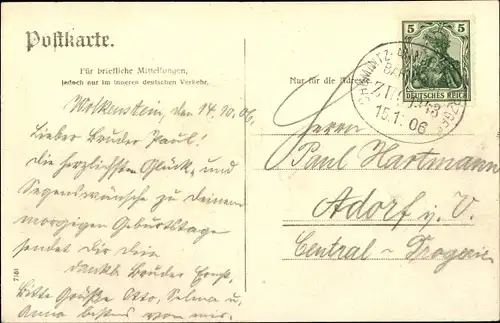 Postkarte.
Für briefliche Mitteilungen,
jedoch nur im inneren deutschen Verkehr.
Nur für die Adresse
5 5
DEUTSCHES REICH
CHEMNITZ-
BAHNPOST
ZUG
15.1 06
Wolkenstein, den 14.10.06.
Lieber Bruder Paul!
Die herzlichsten Glück- und
Segenswünsche zu Deinem
morgigen Geburtstage
sendet Dir Dein
dankb. Bruder Ernst.
Bitte Grüße Otto, Selma u.
Anna bestens von mir.
Herrn
Paul Hartmann
Adorf i. V.
Central-Drogerie
7161